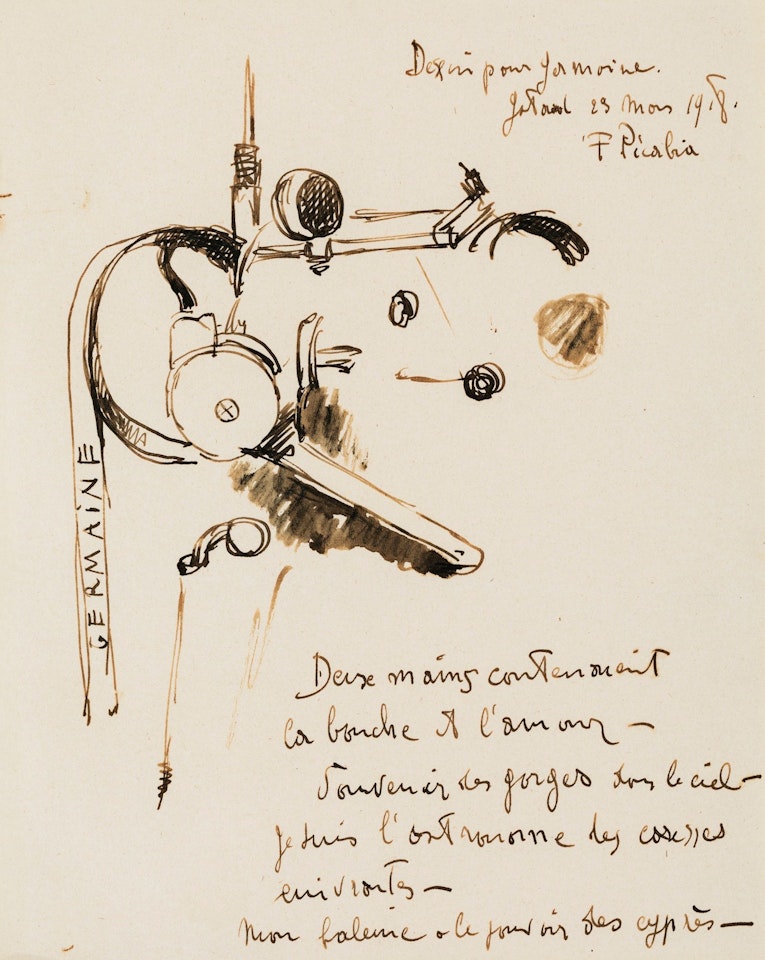 Dessin pour Germaine.
Gstaad 23 Mars 1918.
F Picabia
GERMAiNE
Deux mains contenaient
la bouche et l'amour —
Souvenir des gorges dans le ciel —
je suis l'astronome des caresses
enivrantes —
Mon haleine a le pouvoir des cyprès —